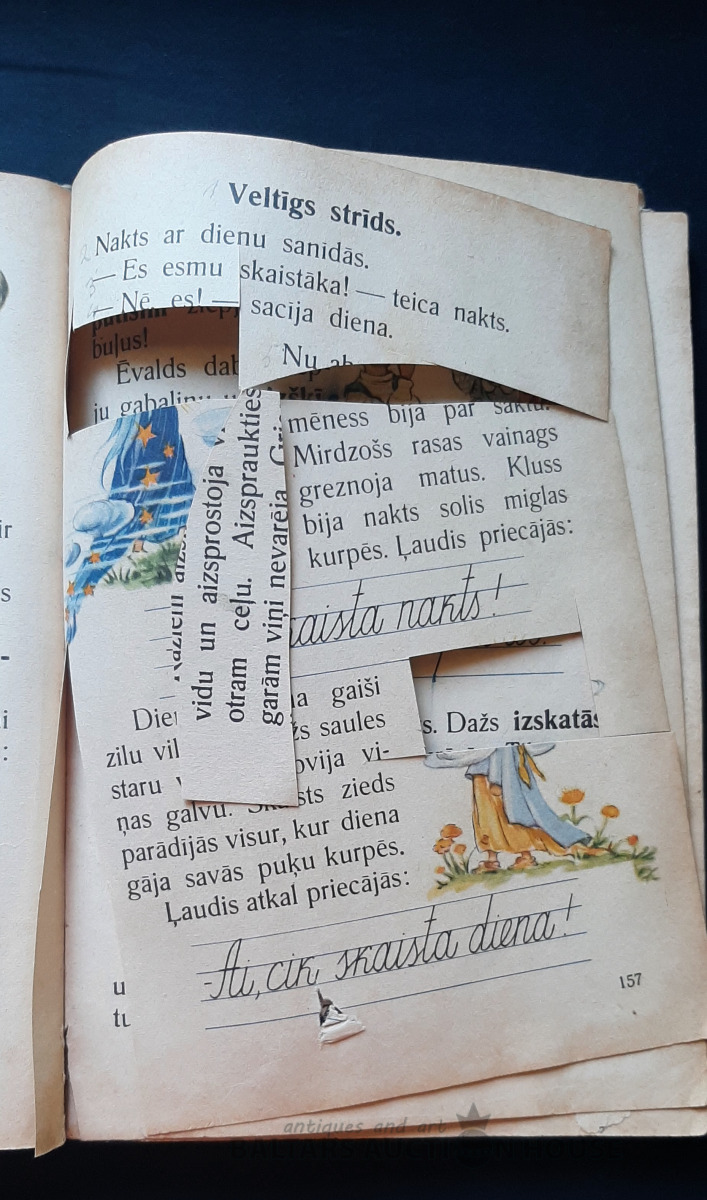 Veltīgs strīds.
Nakts ar dienu sanīdās.
— Es esmu skaistāka! — teica nakts.
— Nē, es! — sacīja diena.
buļus!
Ēvalds
Nu
ju gabaliņu
mēness bija par saktu.
Mirdzošs rasas vainags
greznoja matus. Kluss
bija nakts solis miglas
kurpēs. Ļaudis priecājās:
nakts!
vidu un aizsprostoja
otram ceļu. Aizspraukties
garām viņi nevarēja
gaiši
zilu saules
staru vi-
ņas galvu. zieds
parādījās visur, kur diena
gāja savās puķu kurpēs.
Ļaudis atkal priecājās:
s. Dažs izskatās
Ai, cik skaista diena!
157
antiques and art